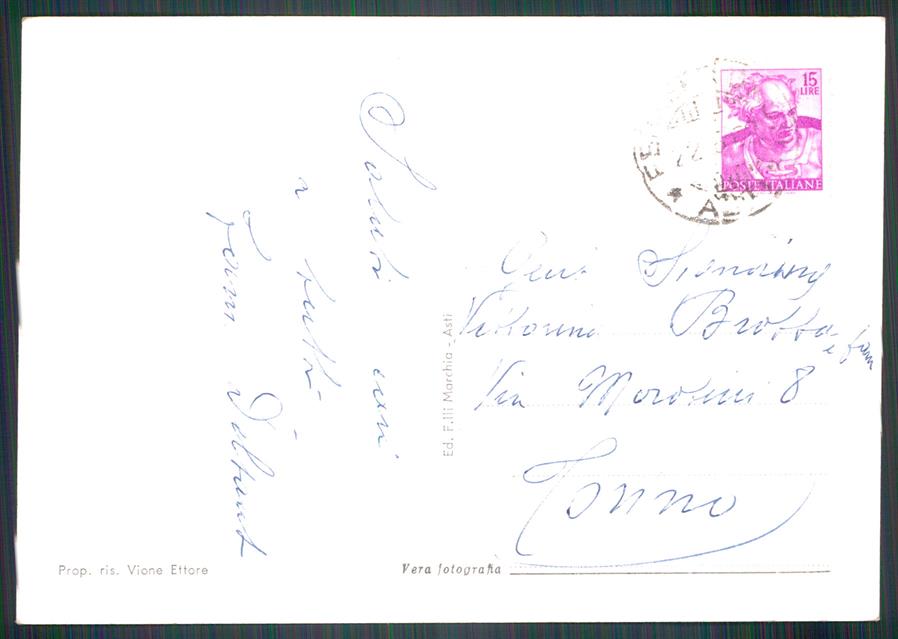 Saluti cari
a tutti
Fam.
15
LIRE
POSTE ITALIANE
Vittorina Brotto
e fam
Via Morosini 8
Torino
Ed. F.lli Marchia - Asti
Prop. ris. Vione Ettore
Vera fotografia